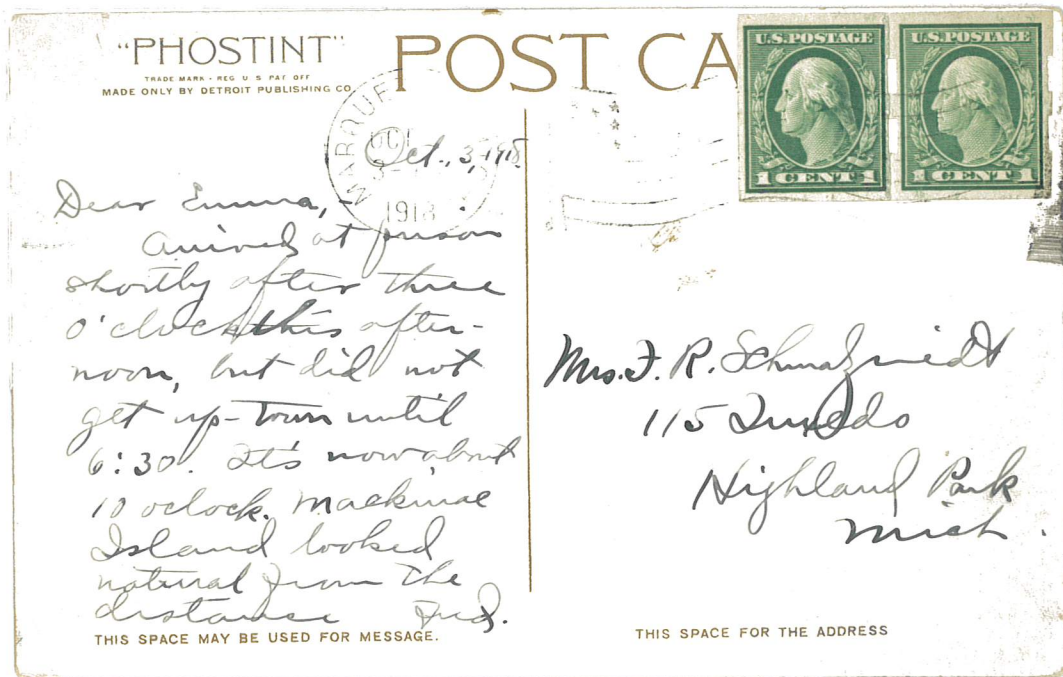 "PHOSTINT"
TRADE MARK - REG U S PAT OFF
MADE ONLY BY DETROIT PUBLISHING CO.
POST CA
U.S. POSTAGE
1 CENT 1
U.S. POSTAGE
1 CENT 1
MARQUE
OCT
1918
Oct. 3, 1918.
Dear Emma, -
Arrived at prison
shortly after three
o'clock this after-
noon, but did not
get up-town until
6:30. It's now about
10 oclock. Mackinac
Island looked
natural from the
distance Fred.
THIS SPACE MAY BE USED FOR MESSAGE.
Mrs. F. R.
115 Tuxedo
Highland Park
Mich.
THIS SPACE FOR THE ADDRESS